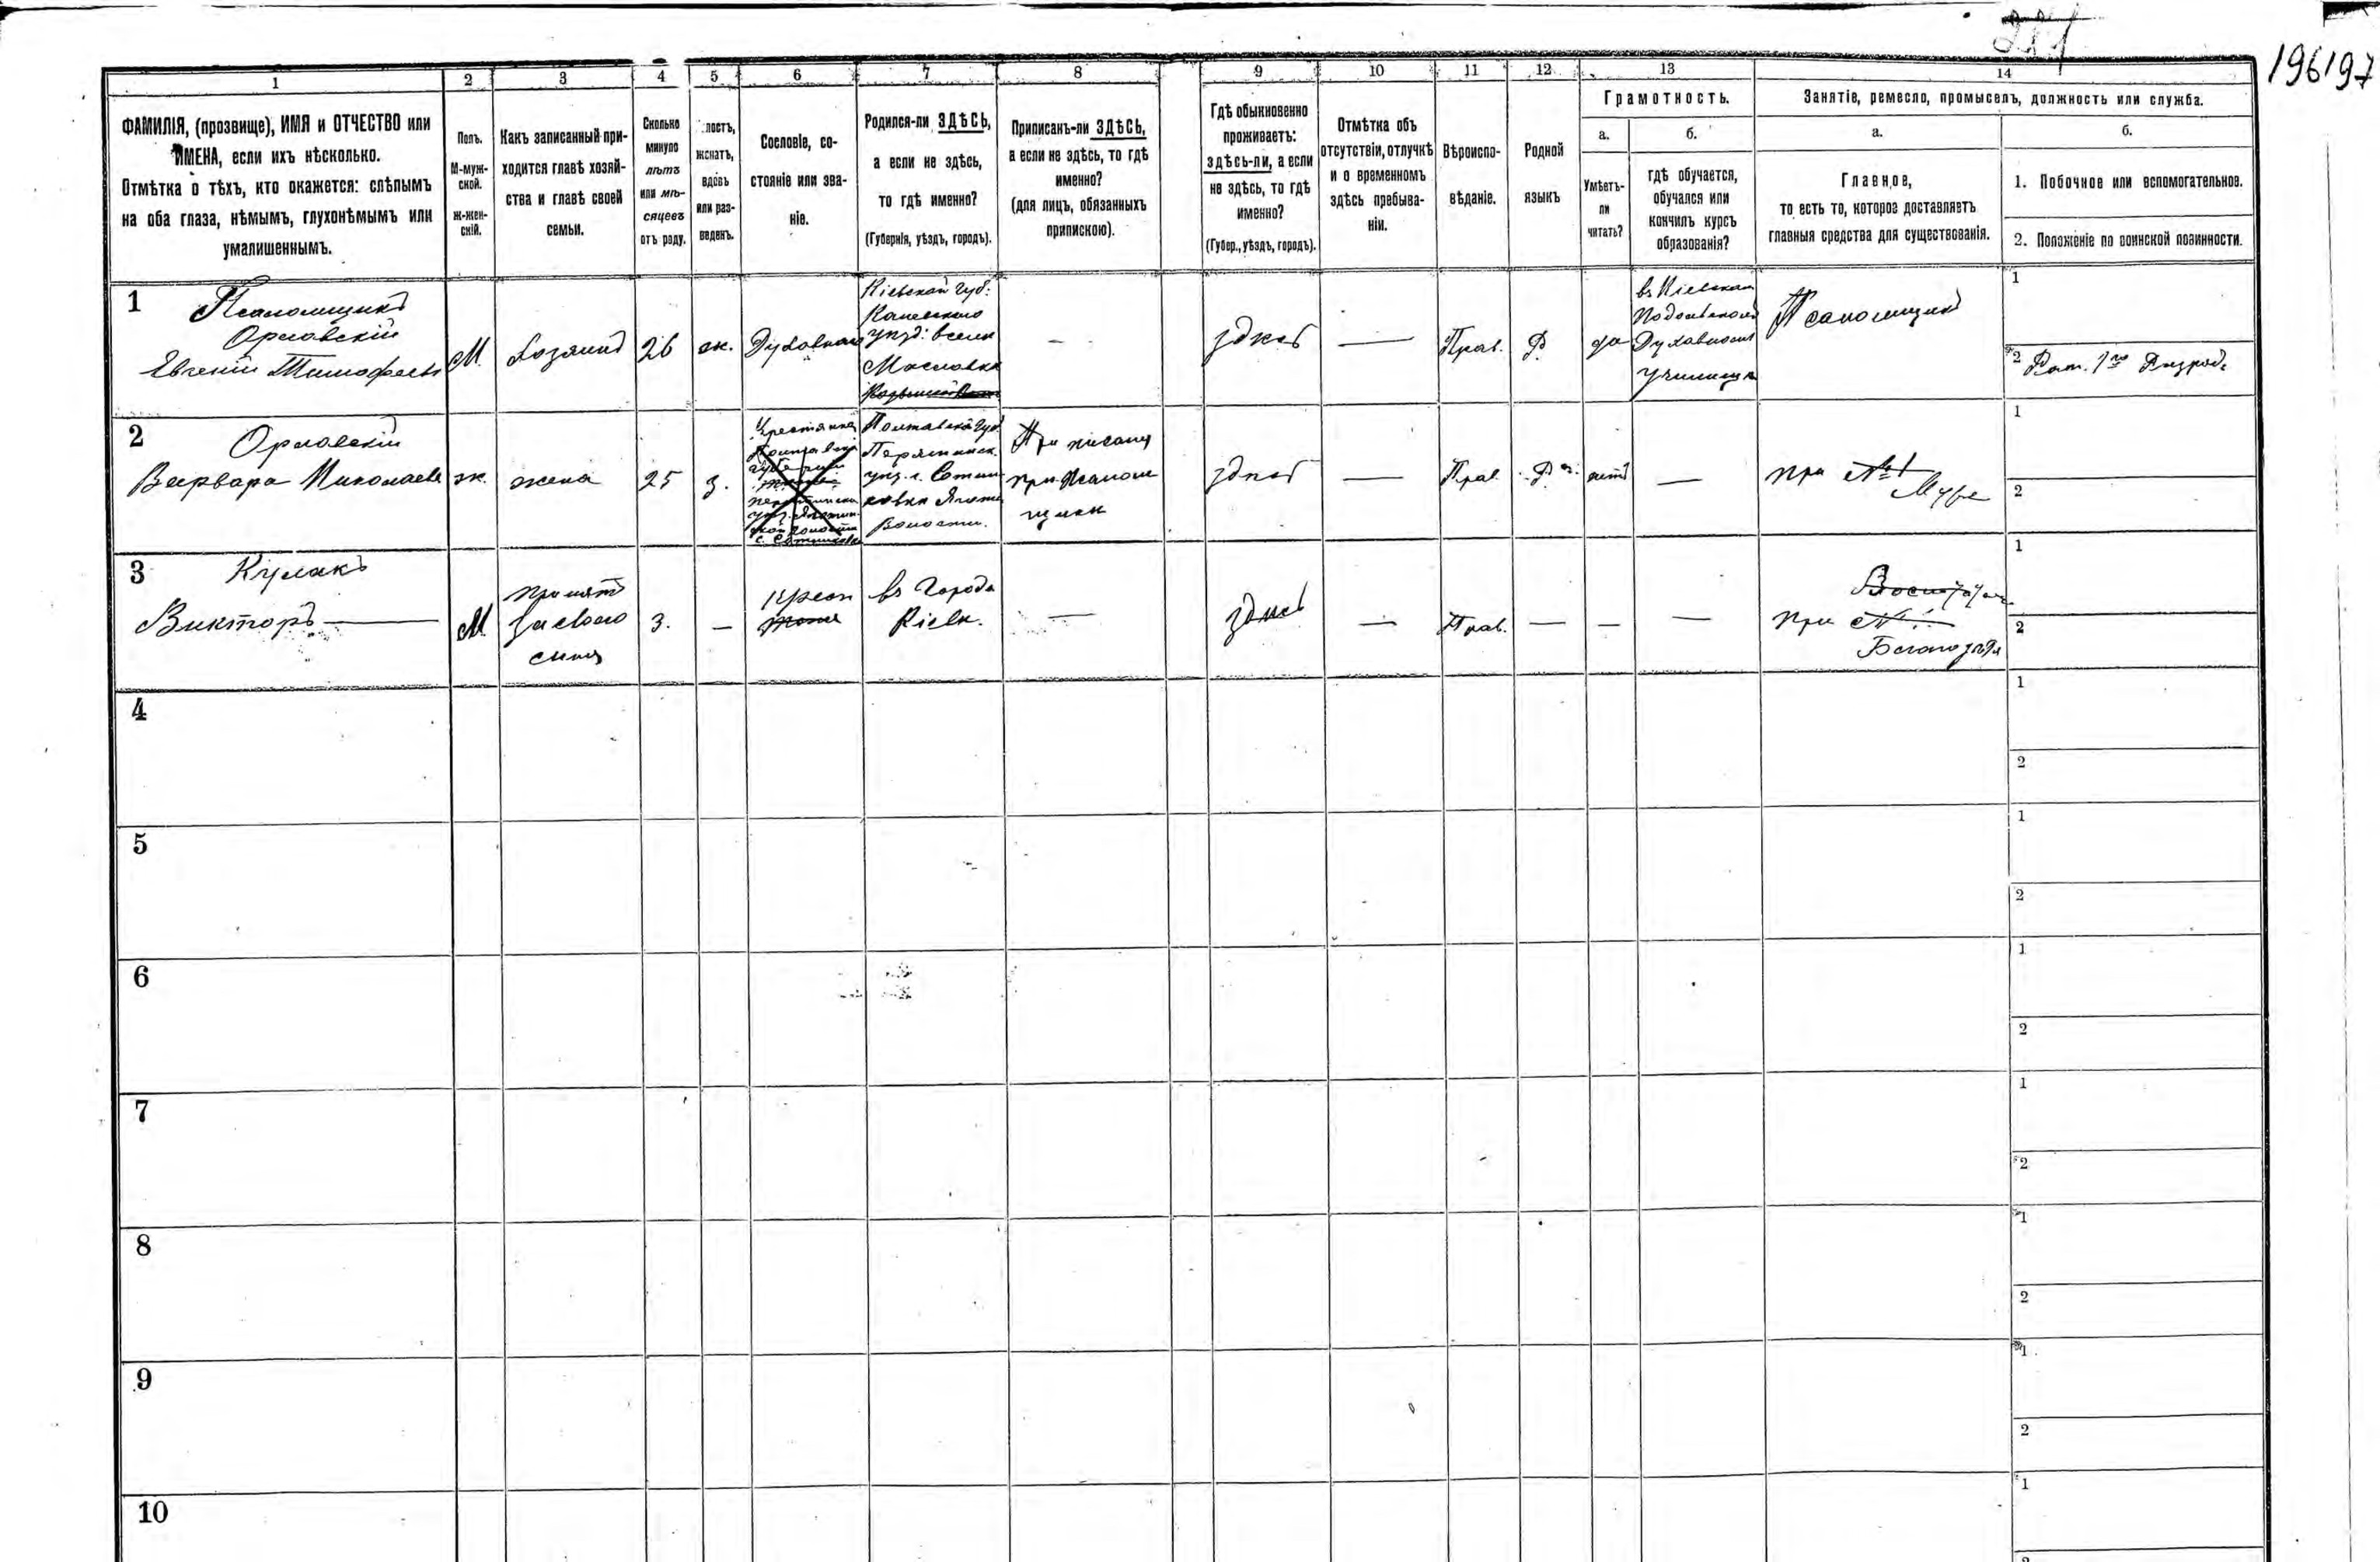 196197
1 2 3 4 5 6 7 8 9 10 11 12 13 14
ФАМИЛІЯ, (прозвище), ИМЯ и ОТЧЕСТВО или
ИМЕНА, если ихъ нѣсколько.
Отмѣтка о тѣхъ, кто окажется: слѣпымъ
на оба глаза, нѣмымъ, глухонѣмымъ или
умалишеннымъ.
Полъ.
М-муж-
ской.
Ж-жен-
скій.
Какъ записанный при-
ходится главѣ хозяй-
ства и главѣ своей
семьи.
Сколько
минуло
лѣтъ
или мѣ-
сяцевъ
отъ роду.
лостъ,
женатъ,
вдовъ
или раз-
веденъ.
Сословіе, со-
стояніе или зва-
ніе.
Родился-ли ЗДѢСЬ,
а если не здѣсь,
то гдѣ именно?
(Губернія, уѣздъ, городъ).
Приписанъ-ли ЗДѢСЬ,
а если не здѣсь, то гдѣ
именно?
(для лицъ, обязанныхъ
припискою).
Гдѣ обыкновенно
проживаетъ:
здѣсь-ли, а если
не здѣсь, то гдѣ
именно?
(Губер., уѣздъ, городъ).
Отмѣтка объ
отсутствіи, отлучкѣ
и о временномъ
здѣсь пребыва-
ніи.
Вѣроиспо-
вѣданіе.
Родной
языкъ
Грамотность.
а.
Умѣетъ-
ли
читать?
б.
гдѣ обучается,
обучался или
кончилъ курсъ
образованія?
Занятіе, ремесло, промыселъ, должность или служба.
а.
Главное,
то есть то, которое доставляетъ
главныя средства для существованія.
б.
1. Побочное или вспомогательное.
2. Положеніе по воинской повинности.
1
Псаломщикъ
Орловскій
Евгеній Тимофеевъ
М.
Хозяинъ
26
ж.
Духовнаго
Кіевской губ:
Каневскаго
уѣзд: в селѣ
Масловкѣ
—
здѣсь
—
Прав.
Р
да
въ Кіевском
Подольском
Духовном
училищѣ
Псаломщикъ
1
2 Рат. 1го Разряд.
2
Орловскій
Варвара Николаева
ж.
жена
25
з.
Крестьянка
Полтавской Губ
Пирятинск.
уѣз. с. Сотни
ковка
Волости.
При писана
при Псалом
щикѣ
здѣсь
—
Прав
Р
нѣтъ
—
при №1
Мужѣ
1
2
3
Кулакъ
Викторъ —
М
принятъ
за своего
сына
3.
—
Крест
въ Городѣ
Кіевѣ.
—
здѣсь
—
Прав.
—
—
—
при №1
1
2
4
1
2
5
1
2
6
1
2
7
1
2
8
1
2
9
1
2
10
1